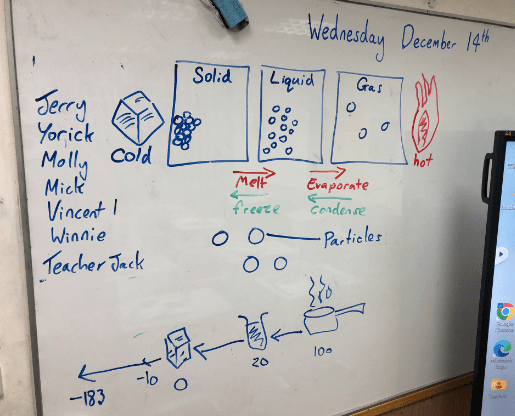 Wednesday December 14th
Solid Liquid Gas
Jerry
Yorick
Molly
Mick
Vincent 1
Winnie
Teacher Jack
Cold
hot
Melt Evaporate
freeze condense
Particles
-183 -10 0 20 100
Google Chrome
Microsoft Edge